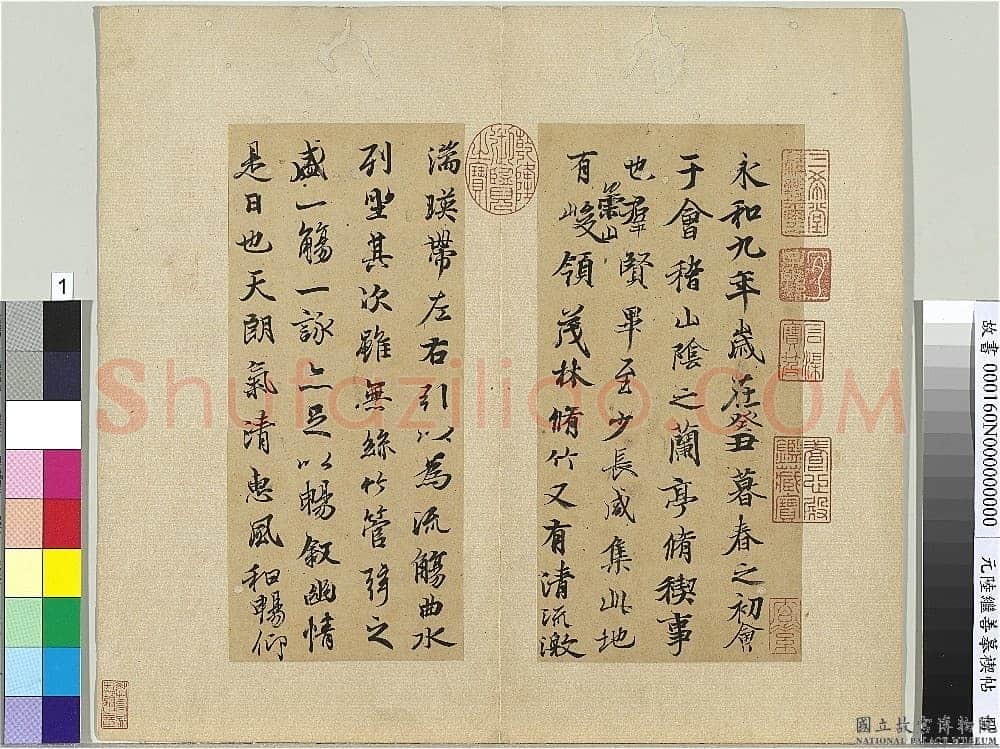 永和九年歲在癸丑暮春之初會
于會稽山陰之蘭亭脩稧事
也羣賢畢至少長咸集此地
有崇山峻領茂林脩竹又有清流激
湍暎帶左右引以為流觴曲水
列坐其次雖無絲竹管弦之
盛一觴一詠亦足以暢敘幽情
是日也天朗氣清惠風和暢仰
三希堂
乾隆御覽之寶
養心殿鑑藏寶
1
Shufaziliao.COM
故書 000160N000000000
元陸繼善摹禊帖
國立故宮博物院
NATIONAL PALACE MUSEUM